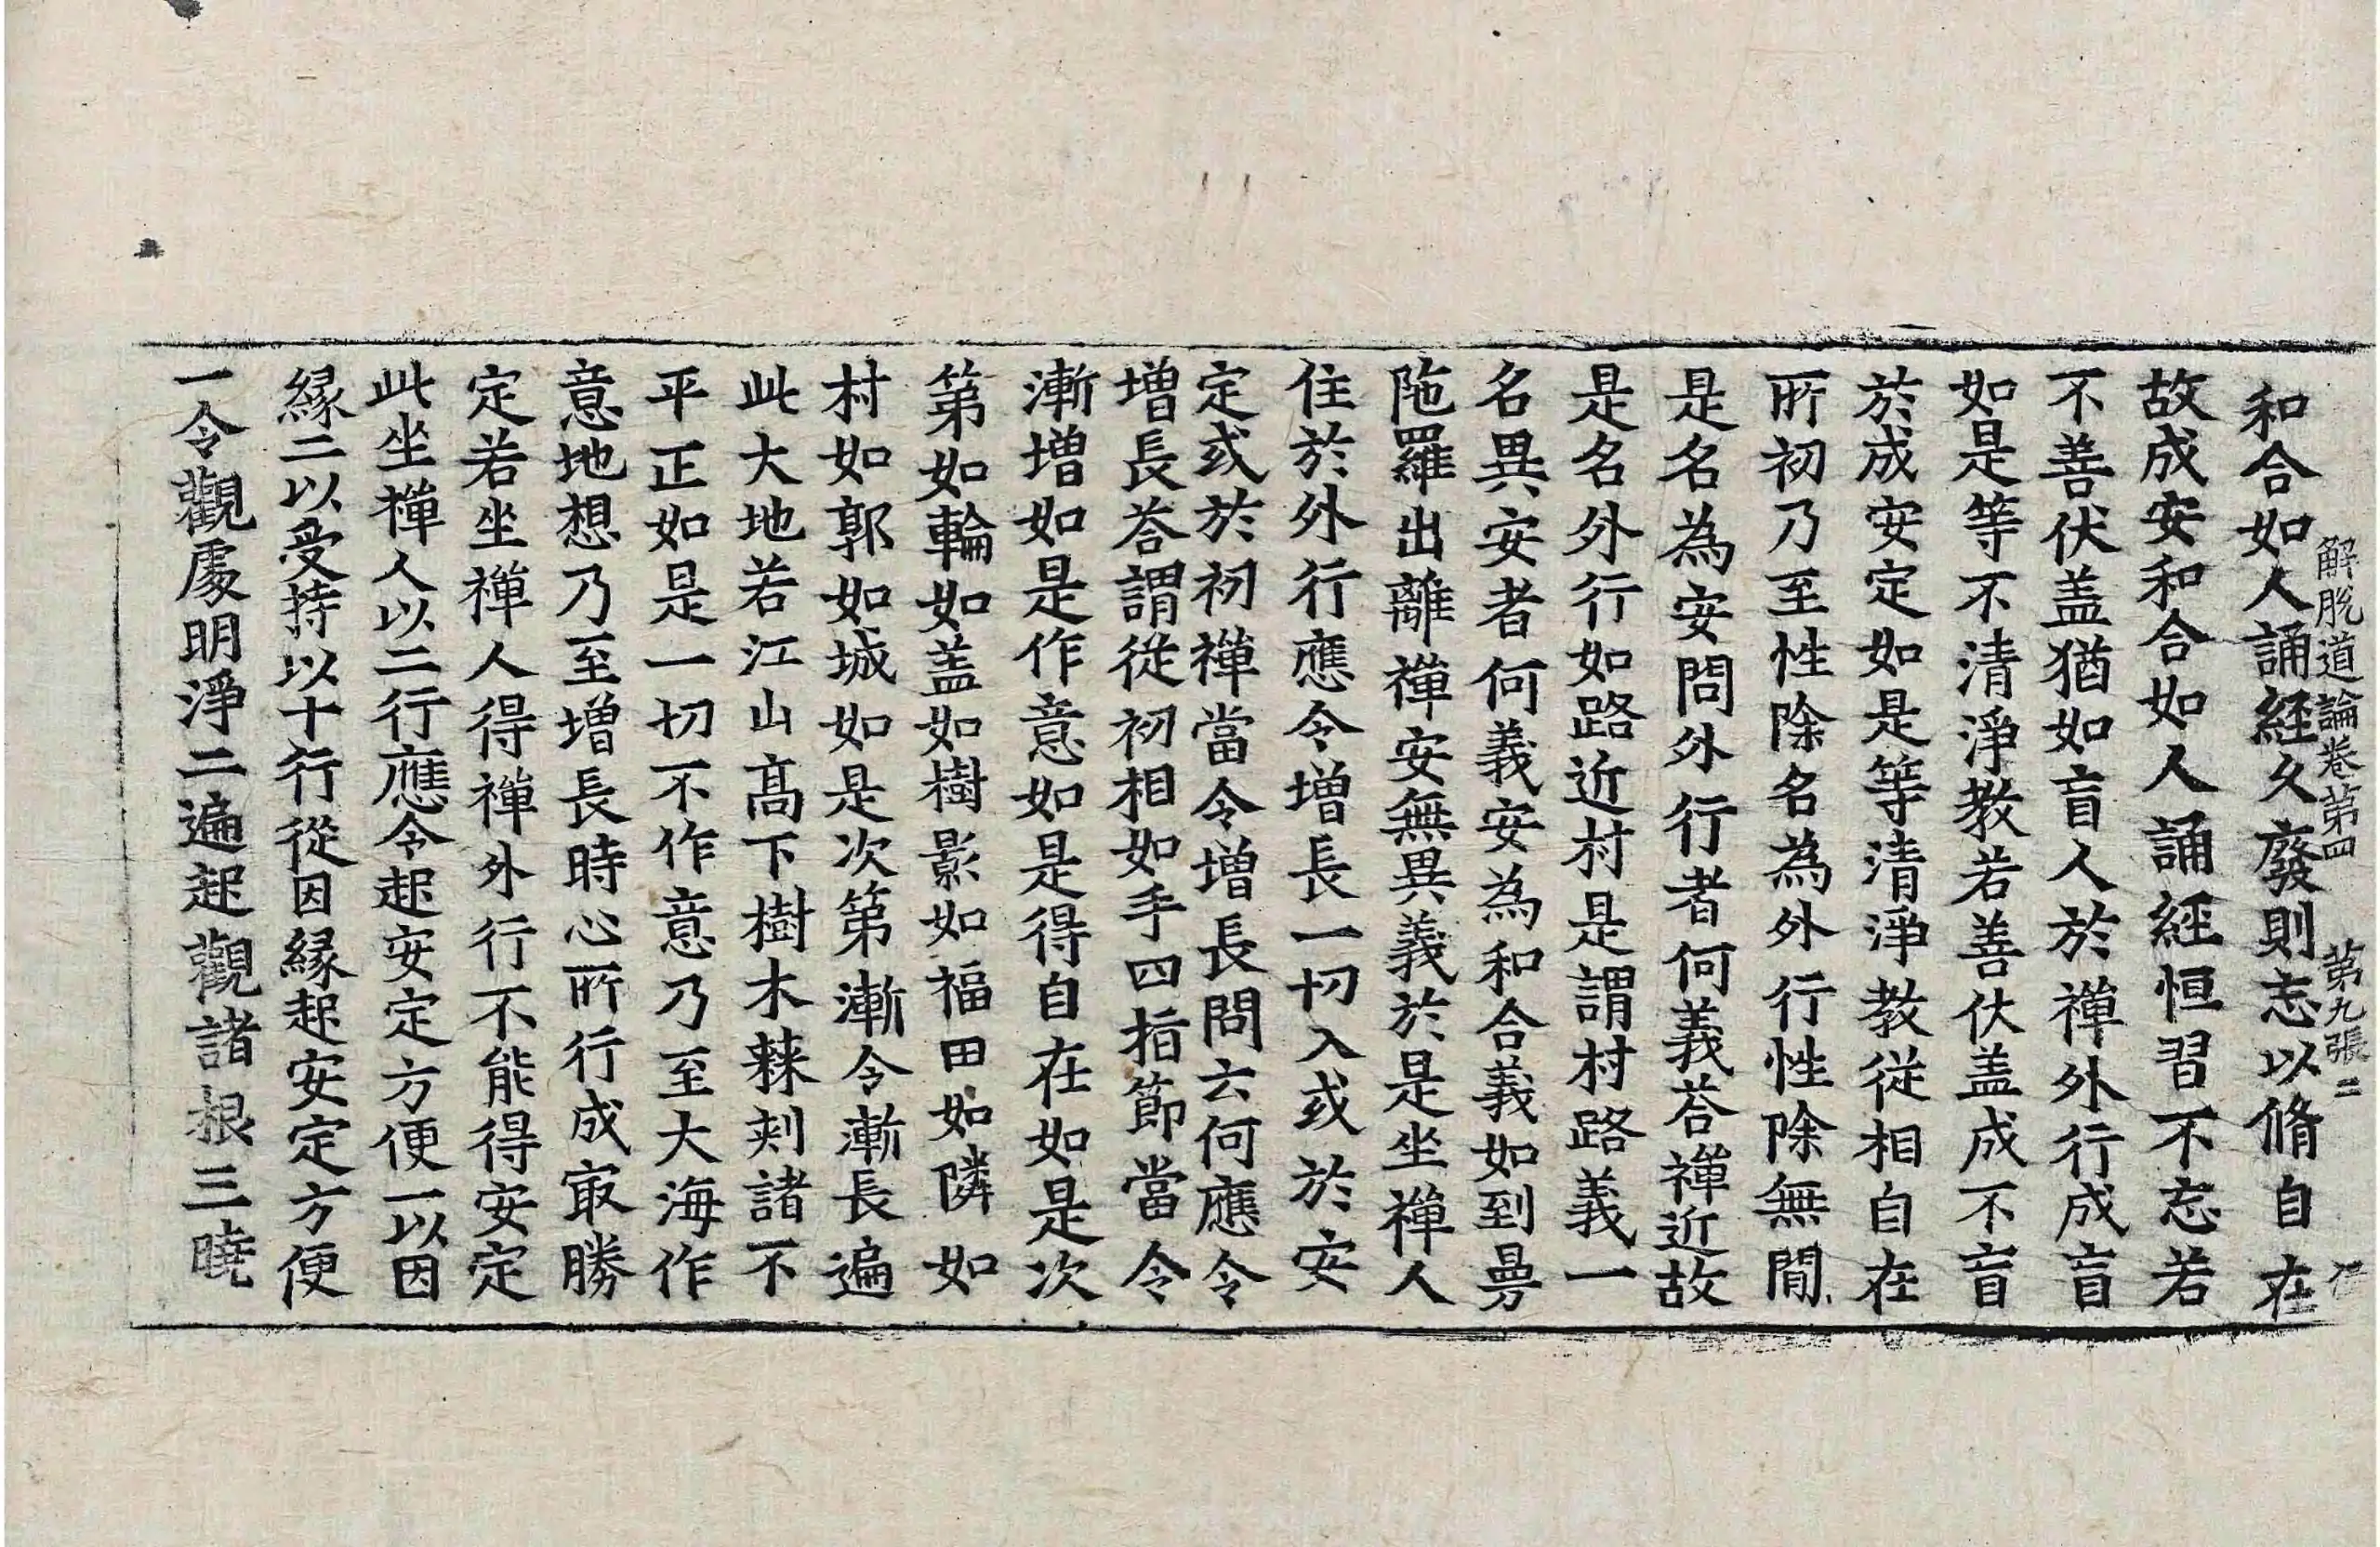 解脫道論卷第四 第九張 二
和合如人誦經久廢則忘以脩自在
故成安和合如人誦經恒習不忘若
不善伏盖猶如盲人於禪外行成盲
如是等不清淨教若善伏盖成不盲
於成安定如是等清淨教從相自在
所初乃至性除名為外行性除無間
是名為安問外行者何義荅禪近故
是名外行如路近村是謂村路義一
名異安者何義安為和合義如到曼
陁羅出離禪安無異義於是坐禪人
住於外行應令增長一切入或於安
定或於初禪當令增長問云何應令
增長荅謂從初相如手四指節當令
漸增如是作意如是得自在如是次
第如輪如盖如樹影如福田如隣如
村如郭如城如是次第漸令漸長遍
此大地若江山髙下樹木棘刾諸不
平正如是一切不作意乃至大海作
意地想乃至增長時心所行成㝡勝
定若坐禪人得禪外行不能得安定
此坐禪人以二行應令起安定方便一以因
緣二以受持以十行從因緣起安定方便
一令觀處明淨二遍起觀諸根三曉